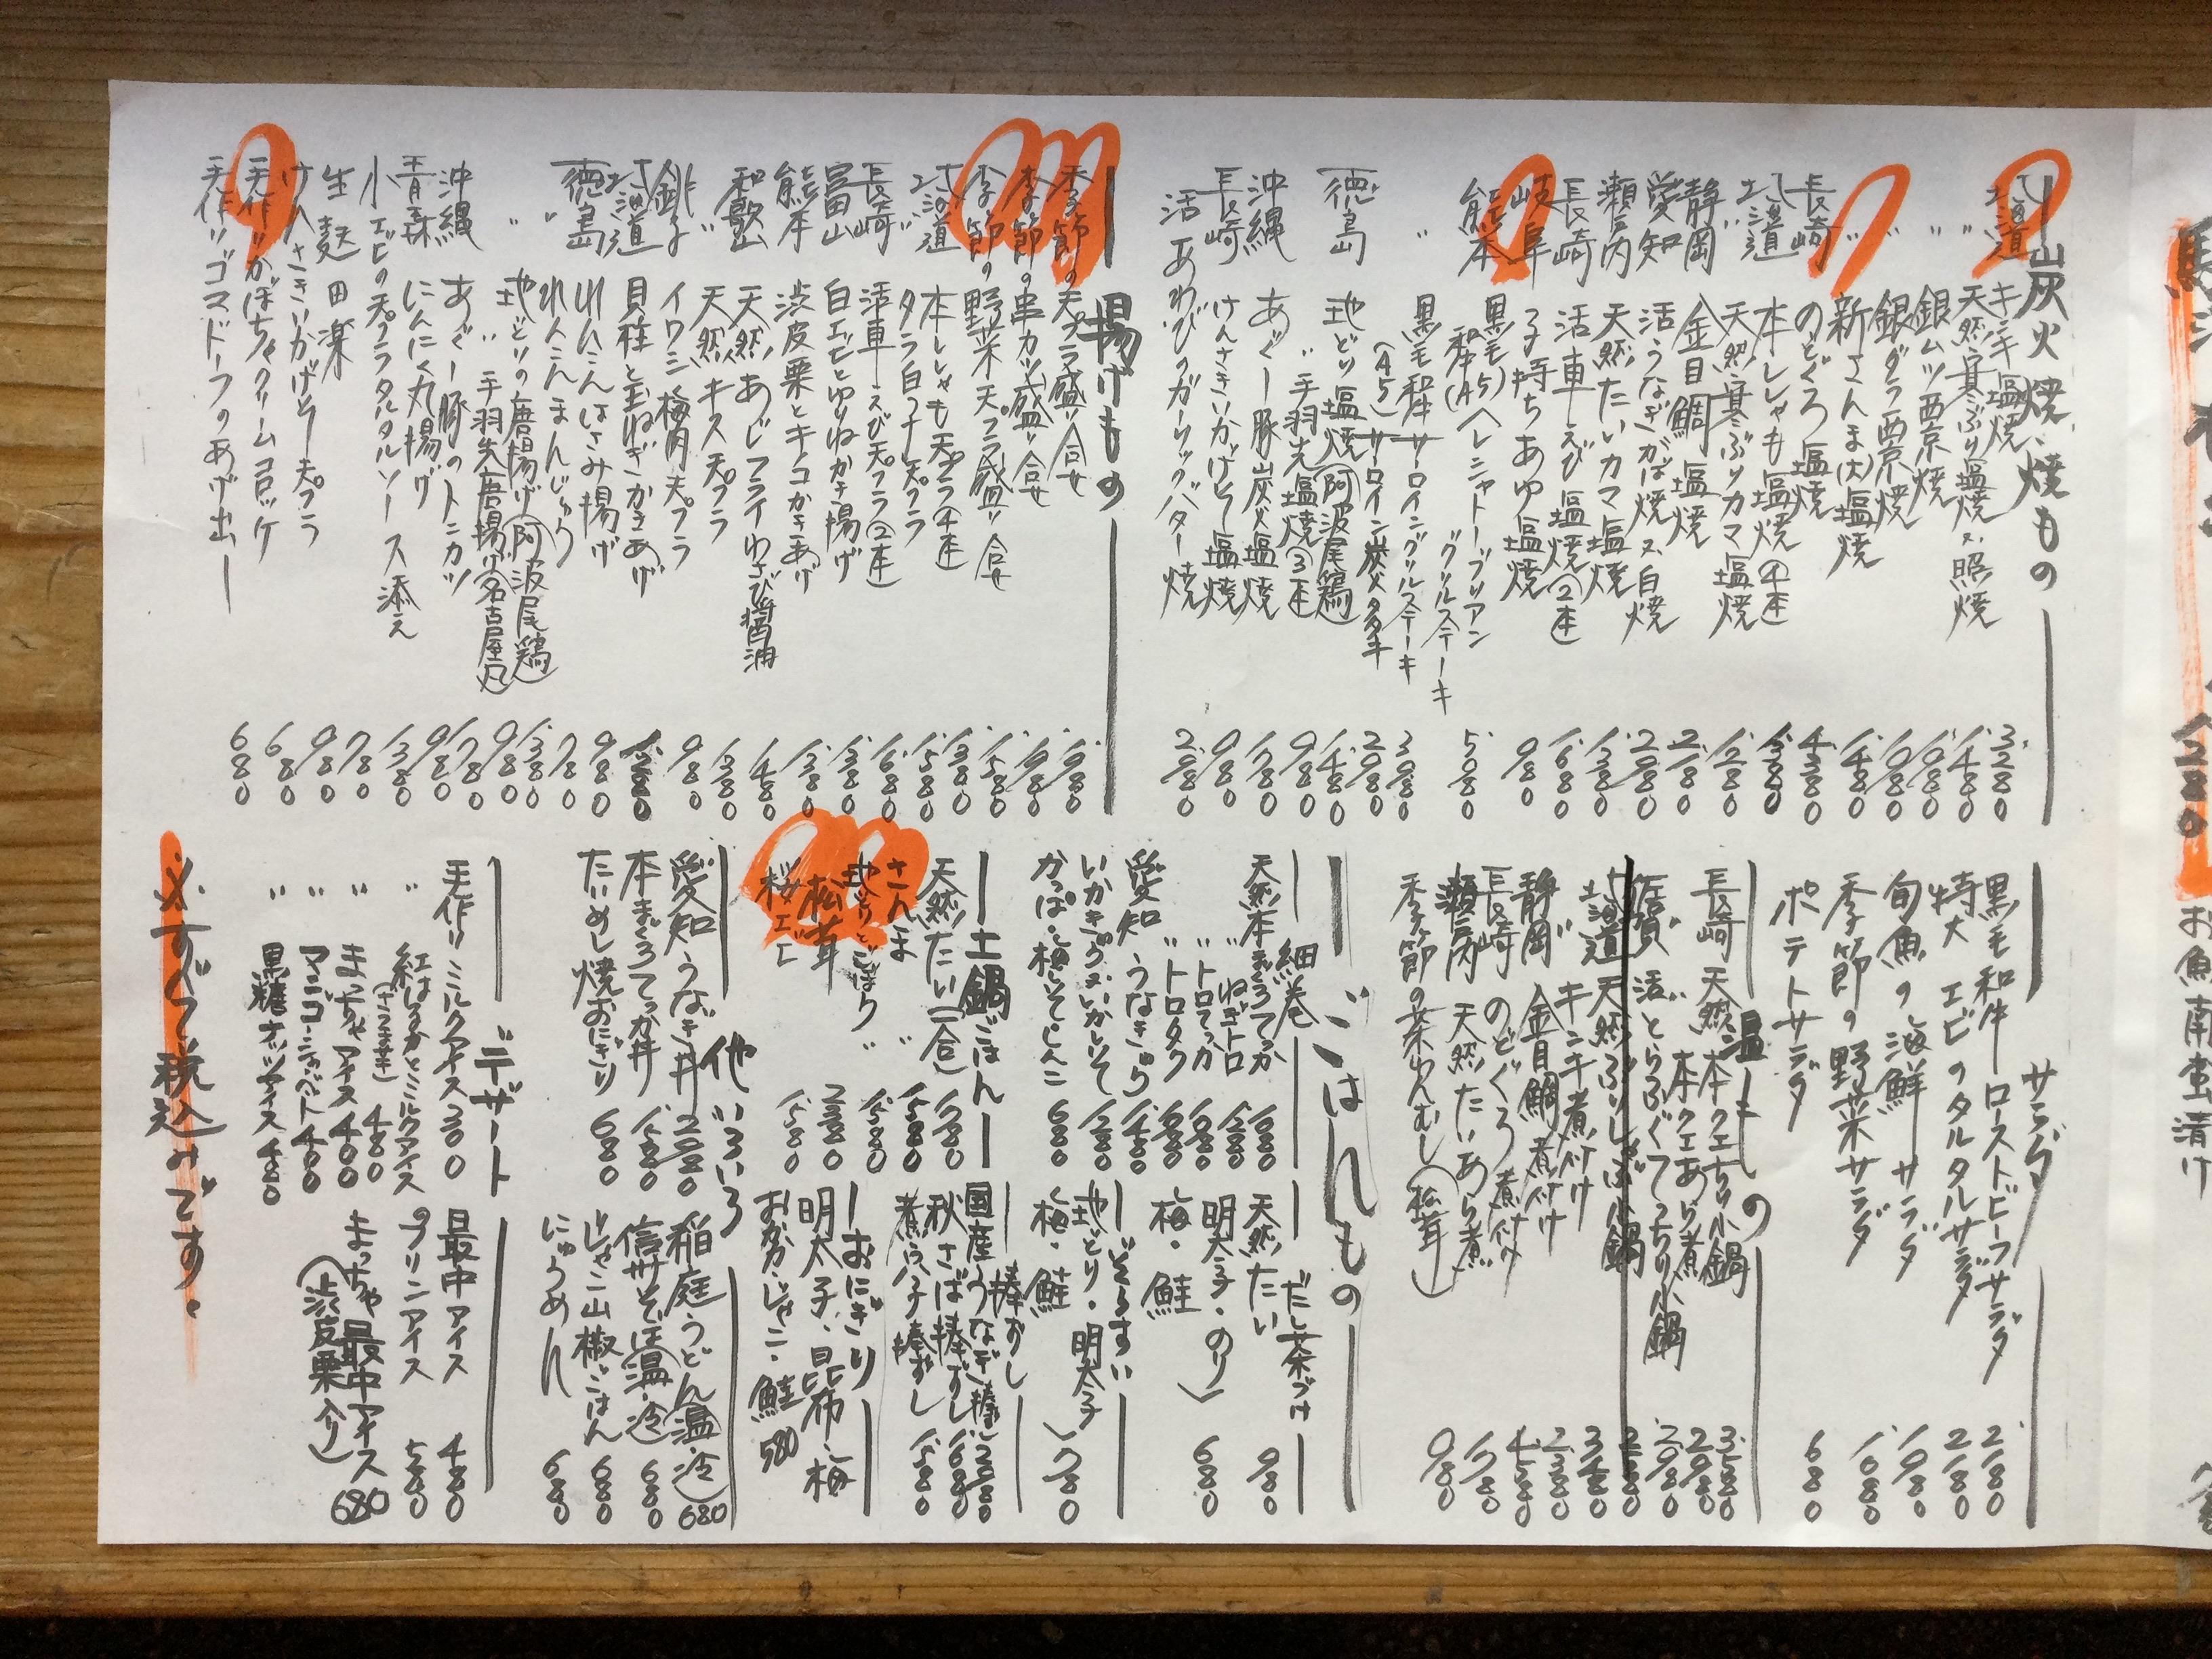 炭火焼、焼もの
北海道 キンキ塩焼 3.280
〃 天然寒ぶり塩焼又は照焼 1.480
〃 銀ムツ西京焼 1.080
〃 銀ダラ西京焼 1.080
〃 新さんま(大)塩焼 1.480
長崎 のどぐろ塩焼 4.380
北海道 本ししゃも塩焼(4本) 1.380
〃 天然寒ぶりカマ塩焼 1.280
静岡 金目鯛塩焼 2.180
愛知 活うなぎかば焼又は白焼 2.980
瀬戸内 天然たいカマ塩焼 1.380
長崎 活車えび塩焼(2本) 1.680
岐阜 子持ちあゆ塩焼 980
熊本 黒毛和牛(A5)ヘレシャトーブリアン
グリルステーキ 5.080
〃 黒毛和牛サーロイングリルステーキ 3.080
(A5)サーロイン炭火タタキ 2.980
徳島 地どり塩焼(阿波尾鶏) 1.480
〃 手羽先塩焼(3本) 980
沖縄 あぐー豚炭火塩焼 1.780
長崎 けんさきいかげそ塩焼 980
活あわびのガーリックバター焼 2.980
揚げもの
季節の天プラ盛り合せ 1.980
季節の串カツ盛り合せ 1.980
季節の野菜天プラ盛り合せ 1.580
北海道 本ししゃも天プラ(4本) 1.380
〃 タラ白子天プラ 1.580
長崎 活車えび天プラ(2本) 1.680
富山 白エビとゆりねかき揚げ 1.380
熊本 渋皮栗とキノコかきあげ 1.380
和歌山 天然あじフライわさび醤油 1.480
〃 天然キス天プラ 1.380
銚子 イワシ梅肉天プラ 980
北海道 貝柱と玉ねぎかきあげ 1.280
徳島 れんこんはさみ揚げ 980
〃 れんこんまんじゅう 780
〃 地どりの唐揚げ(阿波尾鶏) 1.380
〃 手羽先唐揚げ(名古屋風) 980
沖縄 あぐー豚のトンカツ 1.780
青森 にんにく丸揚げ 980
小エビの天プラタルタルソース添え 1.380
生麩田楽 780
けんさきいかげそ天プラ 980
手作りかぼちゃクリームコロッケ 680
手作りゴマドーフのあげ出し 680
サラダ
黒毛和牛ローストビーフサラダ 2.180
特大エビのタルタルサラダ 2.180
旬魚の海鮮サラダ 1.980
季節の野菜サラダ 1.080
ポテトサラダ 680
温もの
長崎 天然本クエちり小鍋 3.580
〃 本クエあら煮 2.980
佐賀 活とらふぐてっちり小鍋 2.980
北海道 天然ぶりしゃぶ小鍋 2.580
〃 キンキ煮付け 3.480
静岡 金目鯛煮付け 2.380
長崎 のどぐろ煮付け 4.580
瀬戸内 天然たいあら煮 1.780
季節の茶わんむし(松茸) 980
ごはんもの
細巻
天然本まぐろてっか 1.680
〃 ねぎトロ 1.280
〃 トロてっか 1.680
〃 トロタク 1.680
愛知 うなきゅう 1.480
いかきゅう・いかしそ 1.280
かっぱ・梅しそ・しんこ 680
だし茶づけ
天然たい 980
明太子・のり
梅・鮭 680
ぞうすい
地どり・明太子
梅・鮭 780
土鍋ごはん
天然たい(一合) 1.780
さんま 〃 1.580
地とりとごぼう 〃 1.580
松茸 2.380
桜エビ 1.580
棒ずし
国産うなぎ(棒) 2.980
秋さば棒ずし 1.680
煮穴子棒ずし 1.580
おにぎり
明太子・昆布・梅
おかか・じゃこ・鮭 580
他いろいろ
愛知うなぎ丼 2.980
本まぐろてっか丼 1.580
たいめし焼おにぎり 680
稲庭うどん(温・冷) 680
信州そば(温・冷) 680
じゃこ山椒ごはん 680
にゅうめん 680
デザート
手作りミルクアイス 300
〃 紅はるかとミルクアイス 480
(さつま芋)
〃 まっちゃアイス 400
〃 マンゴーシャーベット 400
〃 黒糖ナッツアイス 480
最中アイス 480
プリンアイス 580
まっちゃ最中アイス 680
(渋皮栗入り)
※すべて税込みです。
お魚南蛮漬け